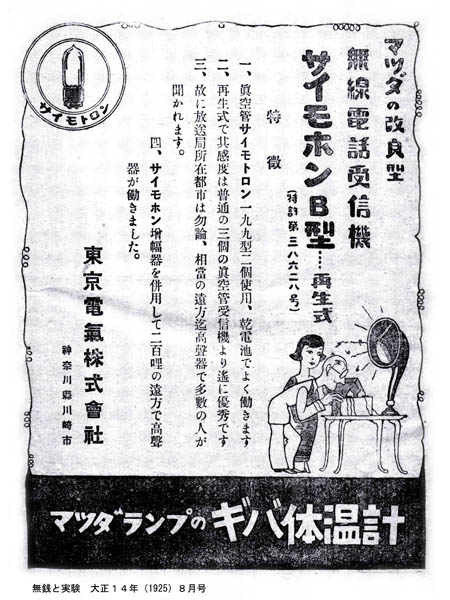 マツダの改良型
無線電話受信機
サイモホンB型……再生式
(特許第三八六二八号)
特徴
一、眞空管サイモトロン一九九型二個使用、乾電池でよく働きます
二、再生式で其感度は普通の三個の眞空管受信機より遙に優秀です
三、故に放送局所在都市は勿論、相當の遠方迄高聲器で多數の人が
聞かれます。
四、サイモホン增幅器を併用して二百哩の遠方で高聲
器が働きました。
東京電氣株式會社
神奈川縣川崎市
サイモトロン
マツダランプのギバ体温計
無銭と実験 大正14年(1925)8月号